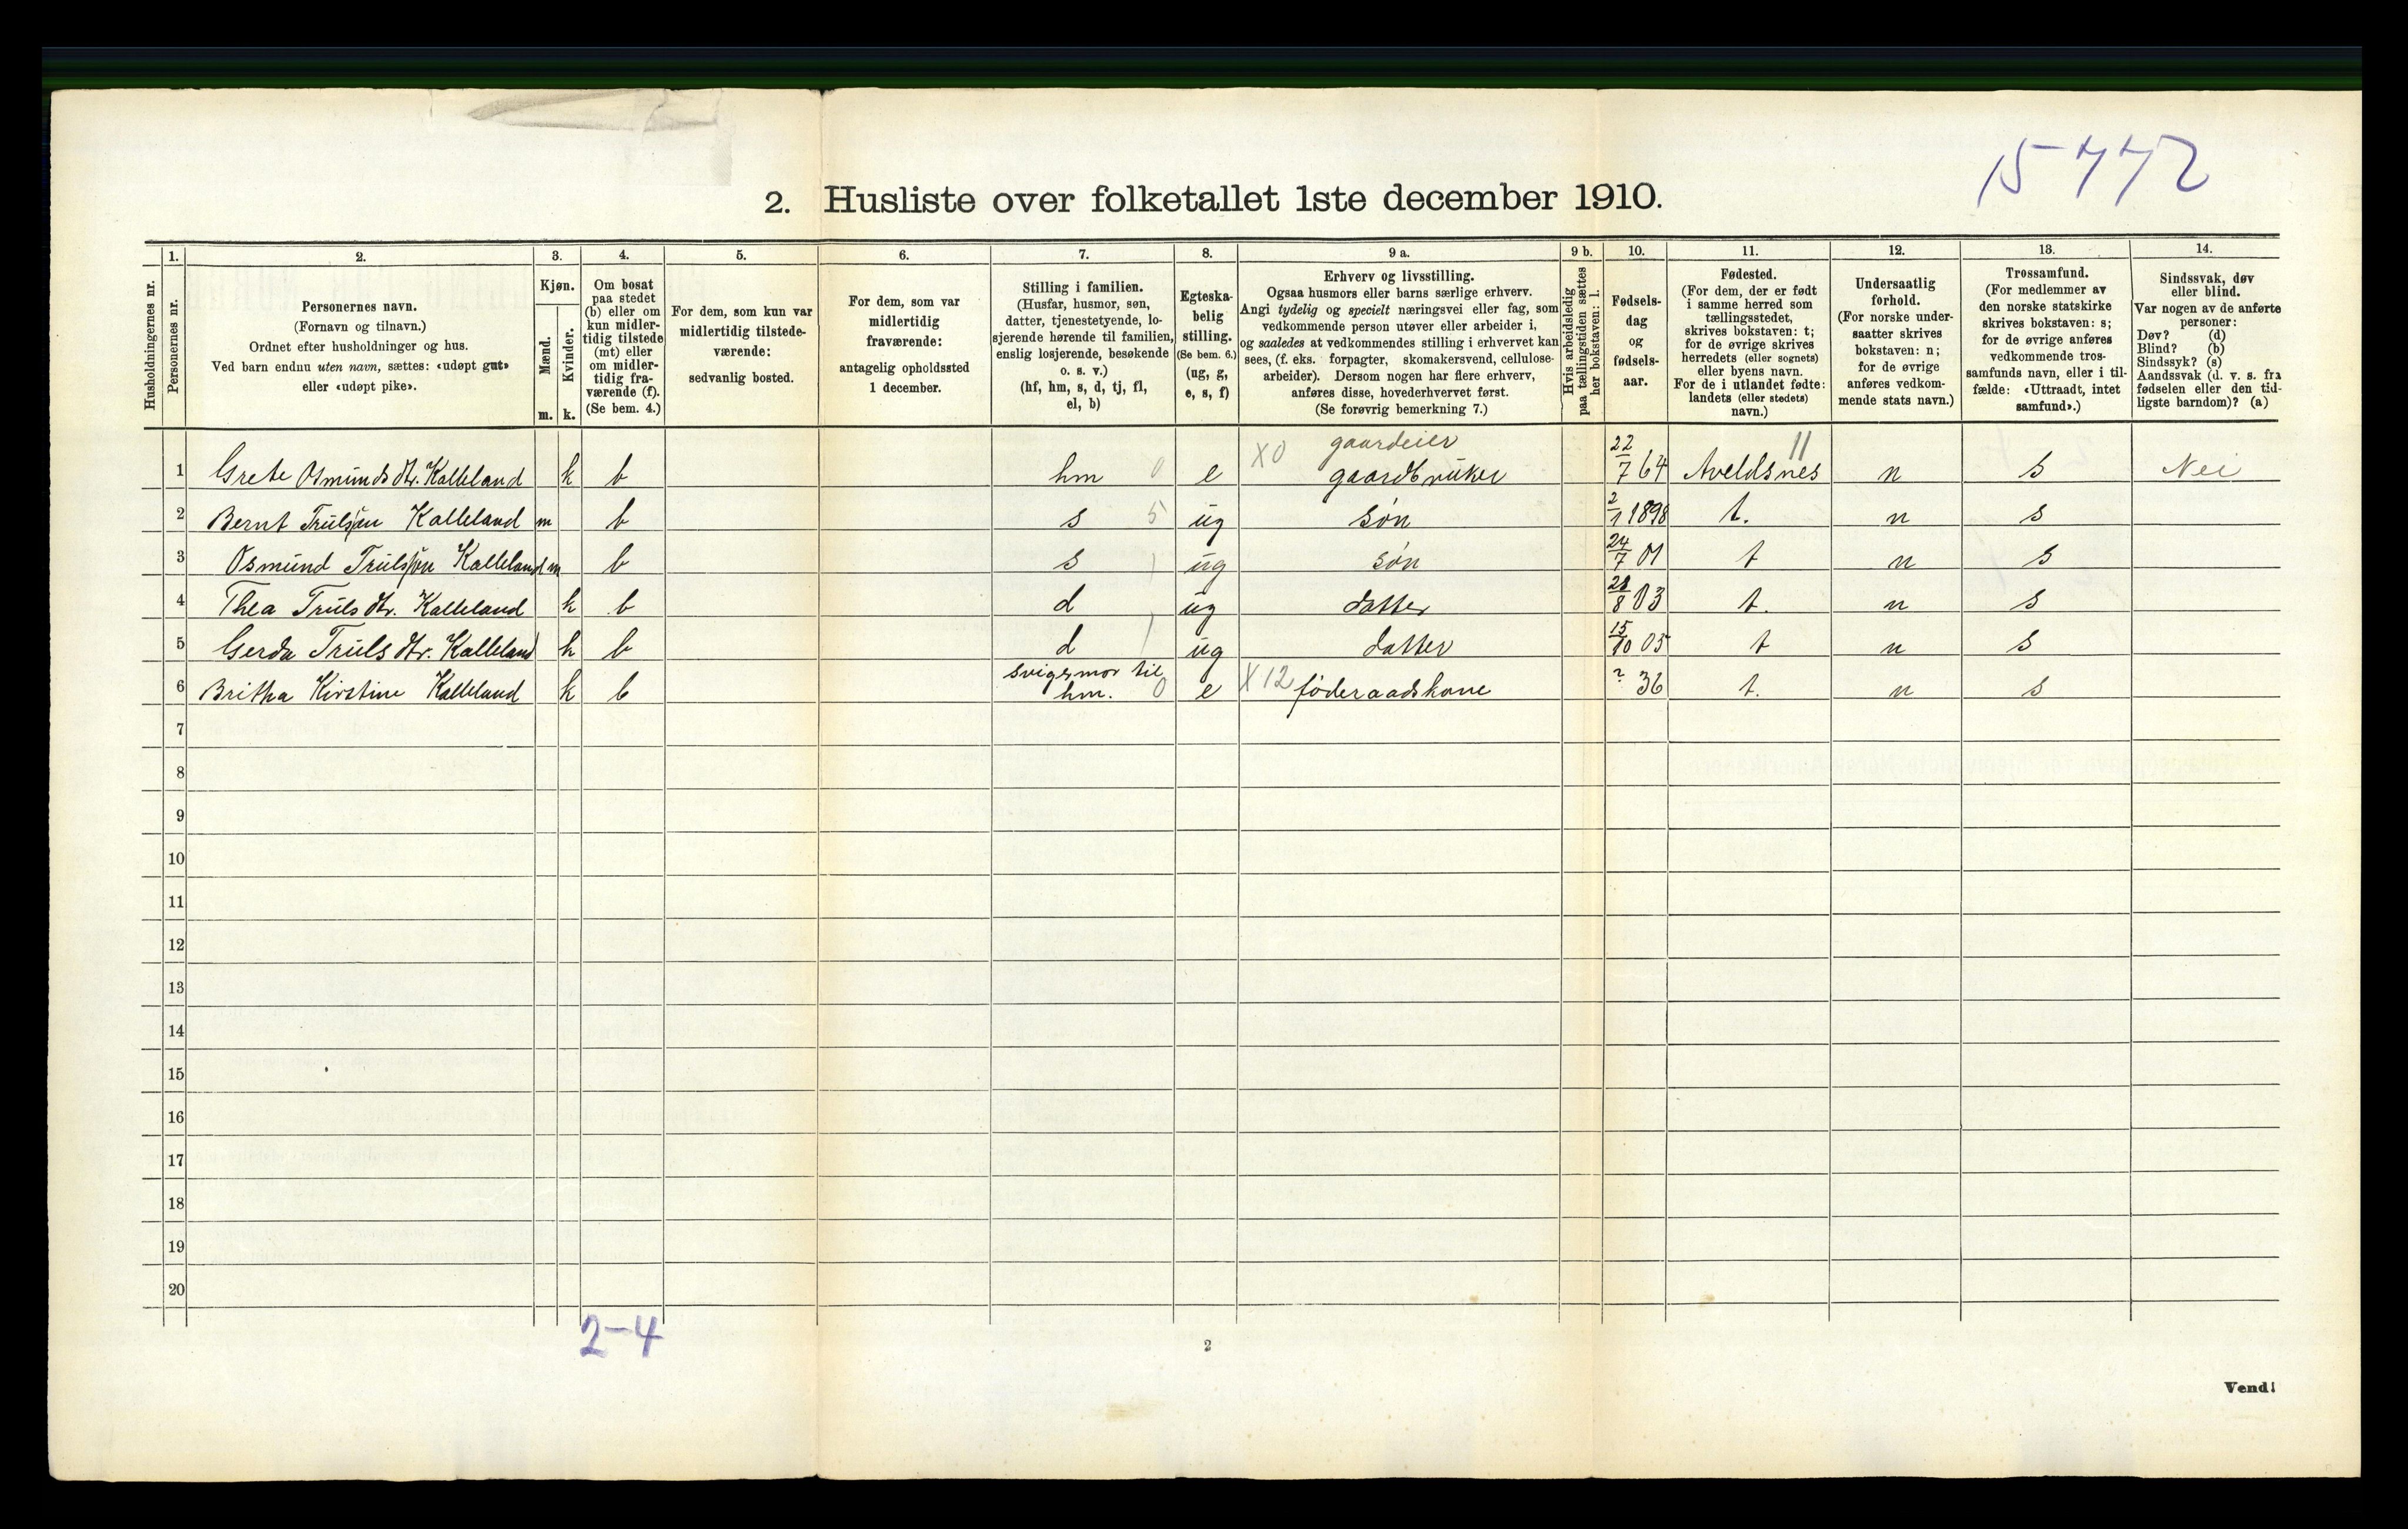 15772
2. Husliste over folketallet 1ste december 1910.
Husholdningernes nr.
1.
Personernes nr.
2.
Personernes navn.
(Fornavn og tilnavn.)
Ordnet efter husholdninger og hus.
Ved barn endnu uten navn, sættes: «udøpt gut»
eller «udøpt pike».
3.
Kjøn.
Mænd.
Kvinder.
m. k.
4.
Om bosat
paa stedet
(b) eller om
kun midler-
tidig tilstede
(mt) eller
om midler-
tidig fra-
værende (f).
(Se bem. 4.)
5.
For dem, som kun var
midlertidig tilstede-
værende:
sedvanlig bosted.
6.
For dem, som var
midlertidig
fraværende:
antagelig opholdssted
1 december.
7.
Stilling i familien.
(Husfar, husmor, søn,
datter, tjenestetyende, lo-
sjerende hørende til familien,
enslig losjerende, besøkende
o. s. v.)
(hf, hm, s, d, tj, fl,
el, b)
8.
Egteska-
belig
stilling.
(Se bem. 6.)
(ug, g,
e, s, f)
9 a.
Erhverv og livsstilling.
Ogsaa husmors eller barns særlige erhverv.
Angi tydelig og specielt næringsvei eller fag, som
vedkommende person utøver eller arbeider i,
og saaledes at vedkommendes stilling i erhvervet kan
sees, (f. eks. forpagter, skomakersvend, cellulose-
arbeider). Dersom nogen har flere erhverv,
anføres disse, hovederhvervet først.
(Se forøvrig bemerkning 7.)
9 b.
Hvis arbeidsledig
paa tællingstiden sættes
her bokstaven: l.
10.
Fødsels-
dag
og
fødsels-
aar.
11.
Fødested.
(For dem, der er født
i samme herred som
tællingsstedet,
skrives bokstaven: t;
for de øvrige skrives
herredets (eller sognets)
eller byens navn.
For de i utlandet fødte:
landets (eller stedets)
navn.)
12.
Undersaatlig
forhold.
(For norske under-
saatter skrives
bokstaven: n;
for de øvrige
anføres vedkom-
mende stats navn.)
13.
Trossamfund.
(For medlemmer av
den norske statskirke
skrives bokstaven: s;
for de øvrige anføres
vedkommende tros-
samfunds navn, eller i til-
fælde: «Uttraadt, intet
samfund».)
14.
Sindssvak, døv
eller blind.
Var nogen av de anførte
personer:
Døv? (d)
Blind? (b)
Sindssyk? (s)
Aandssvak (d. v. s. fra
fødselen eller den tid-
ligste barndom)? (a)
gaardeier 11
1 Grete Osmundsdtr. Kalleland k b hm 0 e X0 gaardbruker 22/7 64 Aveldsnes n s Nei
2 Bernt Trulsen Kalleland m b s 5 ug søn 2/1 1898 t. n s
3 Osmund Trulsen Kalleland m b s 1 ug søn 24/7 01 t n s
4 Thea Trulsdtr. Kalleland k b d ug datter 28/8 03 t. n s
5 Gerda Trulsdtr. Kalleland k b d 1 ug datter 15/10 05 t n s
svigermor til
6 Britha Kirstine Kalleland k b hm. 0 e X12 føderaadskone ? 36 t. n s
7
8
9
10
11
12
13
14
15
16
17
18
19
20
2-4
2
Vend!